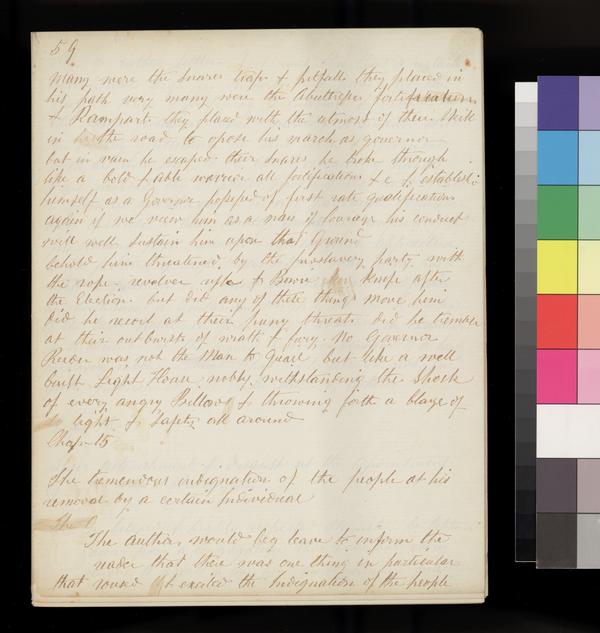 59
many were the snares traps & pitfalls they placed in
his path very many were the Abuttriges fortification
& Ramparts they placed with the utmost of their Skill
in the road to opose his march as governor
but in vain he escaped their snares he broke through
like a bold & able warrior all fortifications & c & establish
himself as a Governor possesed of first rate qualifications
again if we view him as a man of Courage his conduct
will well sustain him upon that Ground
behold him threatened by the proslavery party with
the rope revolver rifle & Bowie Knife after
the Election but did any of these things move him
did he recoil at their puny threats did he tremble
at their outbursts of wrath & fury. No Governor
Reeder was not the Man to Quail but like a well
built Light House nobly withstanding the Shock
of every angry Billow & throwing forth a blaze of
light & Safety all around
Chap 15
The tremendous indignation of the people at his
removal by a certain Individual
The
The Author would beg leave to inform the
reader that there was one thing in particular
that roused & excited the Indignation of the people